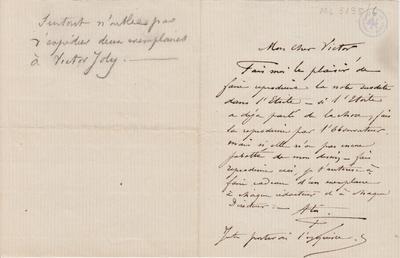 Surtout n'oublie pas
d'expédier deux exemplaires
à Victor Joly.
ML 3195/6
Mon cher Victor
Fais moi le plaisir de
faire reproduire la note susdite
dans l'Etoile – si l'Etoile
a déja parlé de la chose – fais
la reproduire par l'Observateur
mais si elle n'a pas encore
parlé de mon dessin – fais
reproduire ici, je t'autorise à
faire cadeau d'un exemplaire
à chaque rédacteur & à chaque
Directeur –
Je te porterai l'esquisse